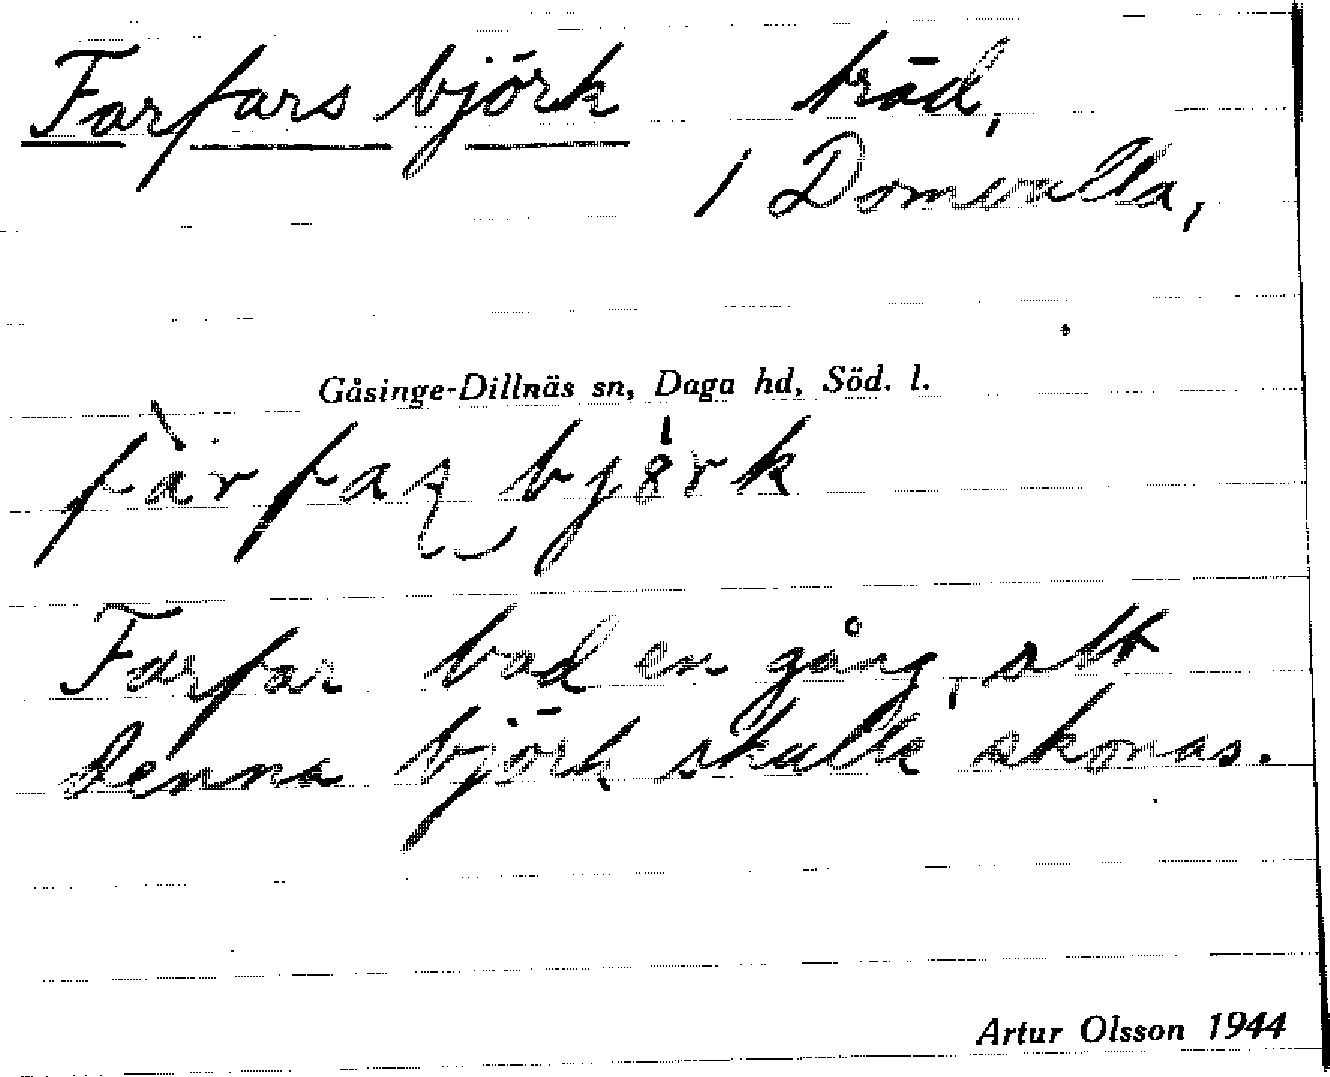 Farfars björk träd,
1 Domvalla,
Gåsinge-Dillnäs sn, Daga hd, Söd. l.
fàrfaʂ björk
Farfar bad en gång, att
denna björk skulle skonas.
Artur Olsson 1944